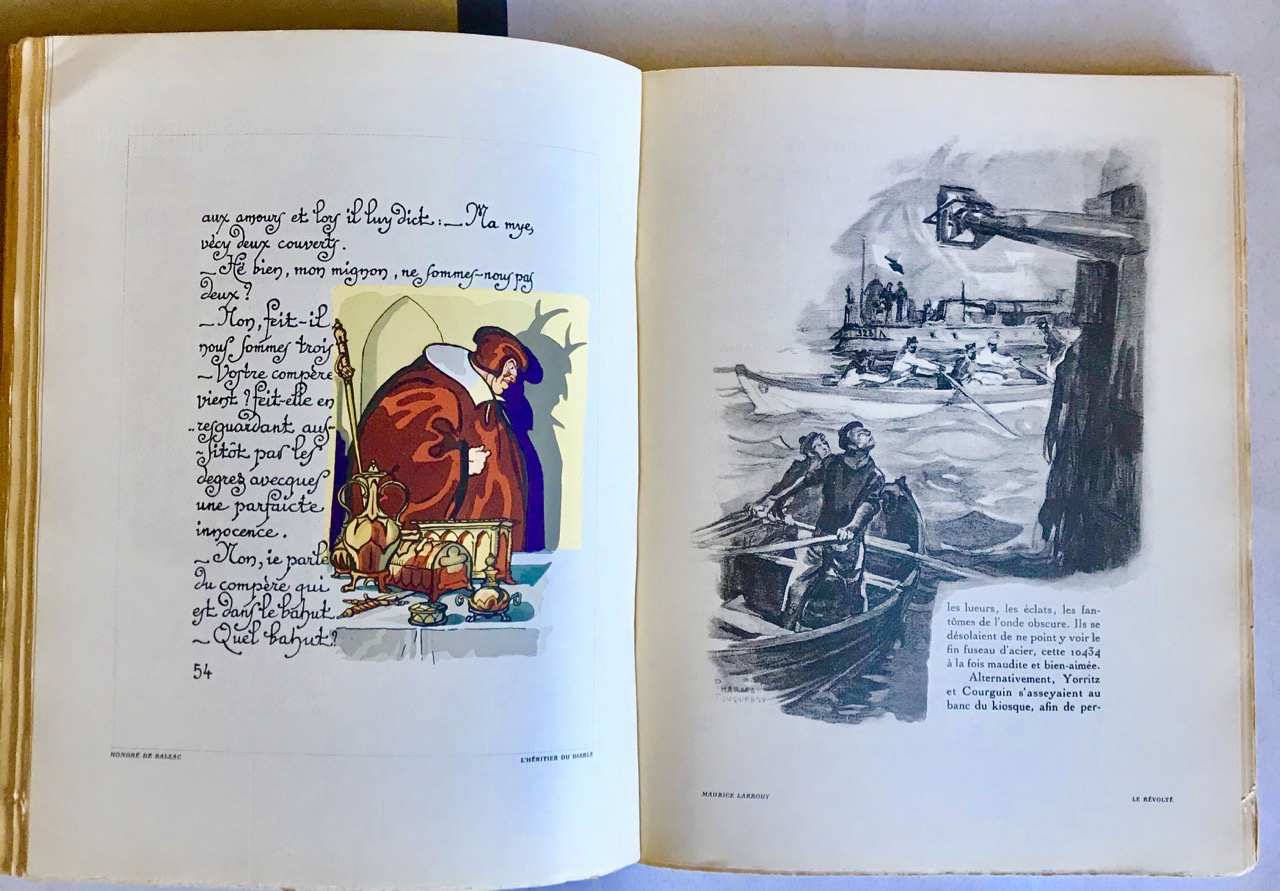 aux amours et lors il luy dict :_ Ma mye,
vècy deux couverts.
_ Hé bien, mon mignon, ne sommes-nous pas
deux ?
_ Non, feit-il
nous sommes trois
_ Vostre compère
vient ? feit-elle en
..resguardant aus-
-sitôt pas les
degrez avecques
une parfaicte
innocence.
_ Non, ie parle
du compère qui
est dans le bahut
_ Quel bahut ?
54
HONORÉ DE BALZAC
L'HÉRITIER DU DIABLE
les lueurs, les éclats, les fan-
tômes de l'onde obscure. Ils se
désolaient de ne point y voir le
fin fuseau d'acier, cette 10434
à la fois maudite et bien-aimée.
Alternativement, Yorritz
et Courguin s'asseyaient au
banc du kiosque, afin de per-
MAURICE LARROUY
LE RÉVOLTÉ